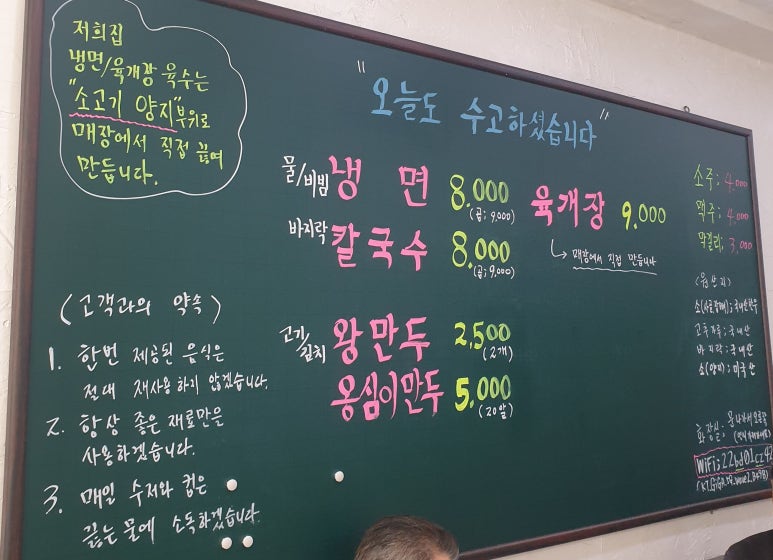 저희집
냉면/육개장 육수는
"소고기 양지"부위로
매장에서 직접 끓여
만듭니다.
"오늘도 수고하셨습니다"
물/비빔 냉면 8.000
(곱; 9,000)
바지락 칼국수 8.000
(곱; 9,000)
육개장 9.000
매장에서 직접 만듭니다
고기/김치 왕만두 2,500
(2개)
옹심이만두 5,000
(20알)
소주; 4.000
맥주; 4.000
막걸리; 3,000
(고객과의 약속)
1. 한번 제공된 음식은
절대 재사용 하지 않겠습니다.
2. 항상 좋은 재료만을
사용하겠습니다.
3. 매일 수저와 컵은
끓는 물에 소독하겠습니다.
(원산지)
고춧가루; 국내산
바지락; 국내산
소(양지); 미국산
화장실;
WiFi; 22bd01cz42